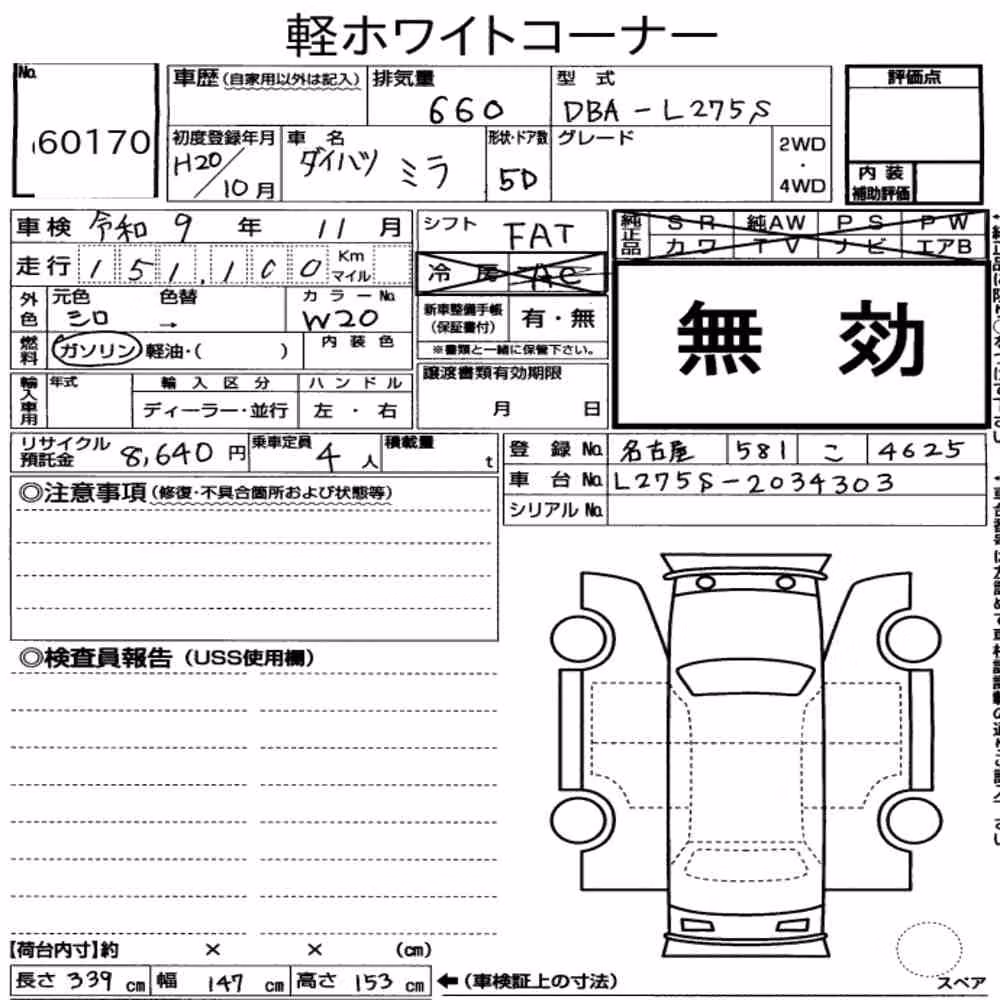 軽ホワイトコーナー
No. 60170
車歴(自家用以外は記入) 排気量 660 型式 DBA-L275S
初度登録年月 H20/10月 車名 ダイハツ ミラ 形状・ドア数 5D グレード 2WD・4WD
評価点
内装補助評価
車検 令和 9年 11月 シフト FAT
走行 151,100 Km マイル 冷房 AC
純正品 SR 純AW PS PW
カワ TV ナビ エアB
外色 元色 シロ 色替 → カラーNo. W20
新車整備手帳(保証書付) 有・無
※書類と一緒に保管下さい。
燃料 ガソリン 軽油・( ) 内装色
無効
輸入車用 年式 輸入区分 ハンドル
ディーラー・並行 左・右
譲渡書類有効期限
月 日
リサイクル預託金 8,640円 乗車定員 4人 積載量 t
登録No. 名古屋 581 こ 4625
車台No. L275S-2034303
シリアルNo.
◎注意事項(修復・不具合箇所および状態等)
◎検査員報告(USS使用欄)
【荷台内寸】約 × × (cm)
長さ 339cm 幅 147cm 高さ 153cm ←(車検証上の寸法)
スペア